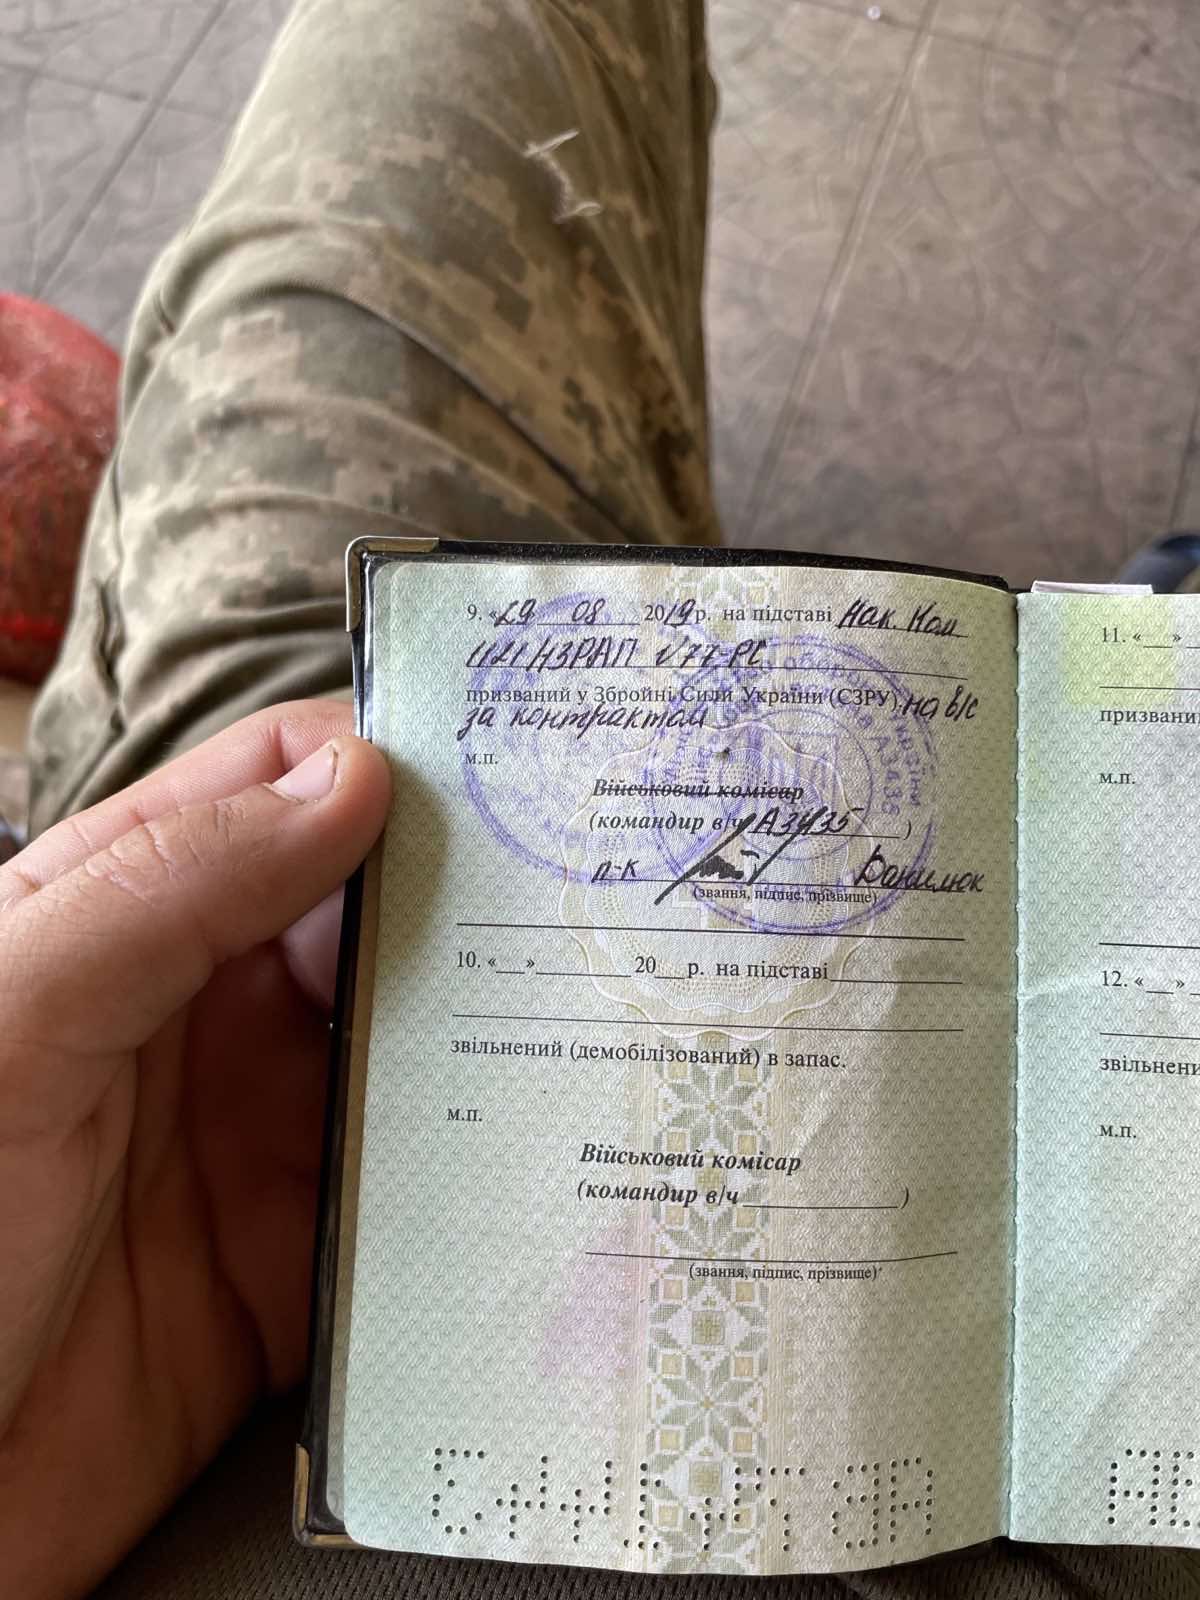 9. «29» 08 2019 р. на підставі Нак. Ком
ЗРАП №77-РС
призваний у Збройні Сили України (СЗРУ) на в/с
за контрактом
м.п.
Військовий комісар
(командир в/ч А3435)
п-к Данилюк
(звання, підпис, прізвище)
10. «__»________ 20__р. на підставі
звільнений (демобілізований) в запас.
м.п.
Військовий комісар
(командир в/ч ____________)
(звання, підпис, прізвище)
11. «__»
призвани
м.п.
12. «__»
звільнени
м.п.